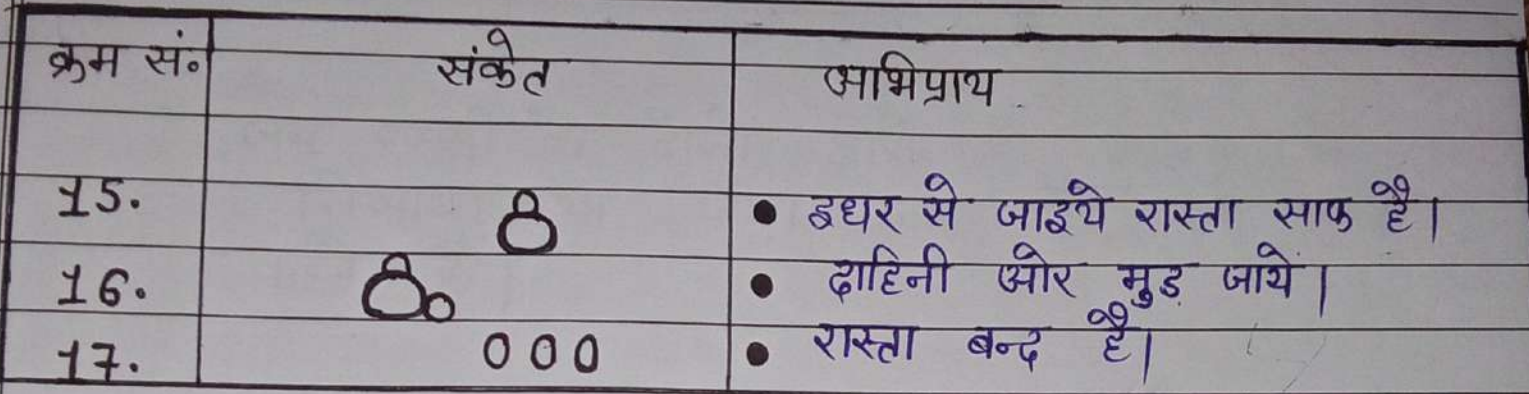 क्रम सं० संकेत अभिप्राय
15. • इधर से जाइये रास्ता साफ है।
16. • दाहिनी ओर मुड़ जाये।
17. 000 • रास्ता बन्द है।